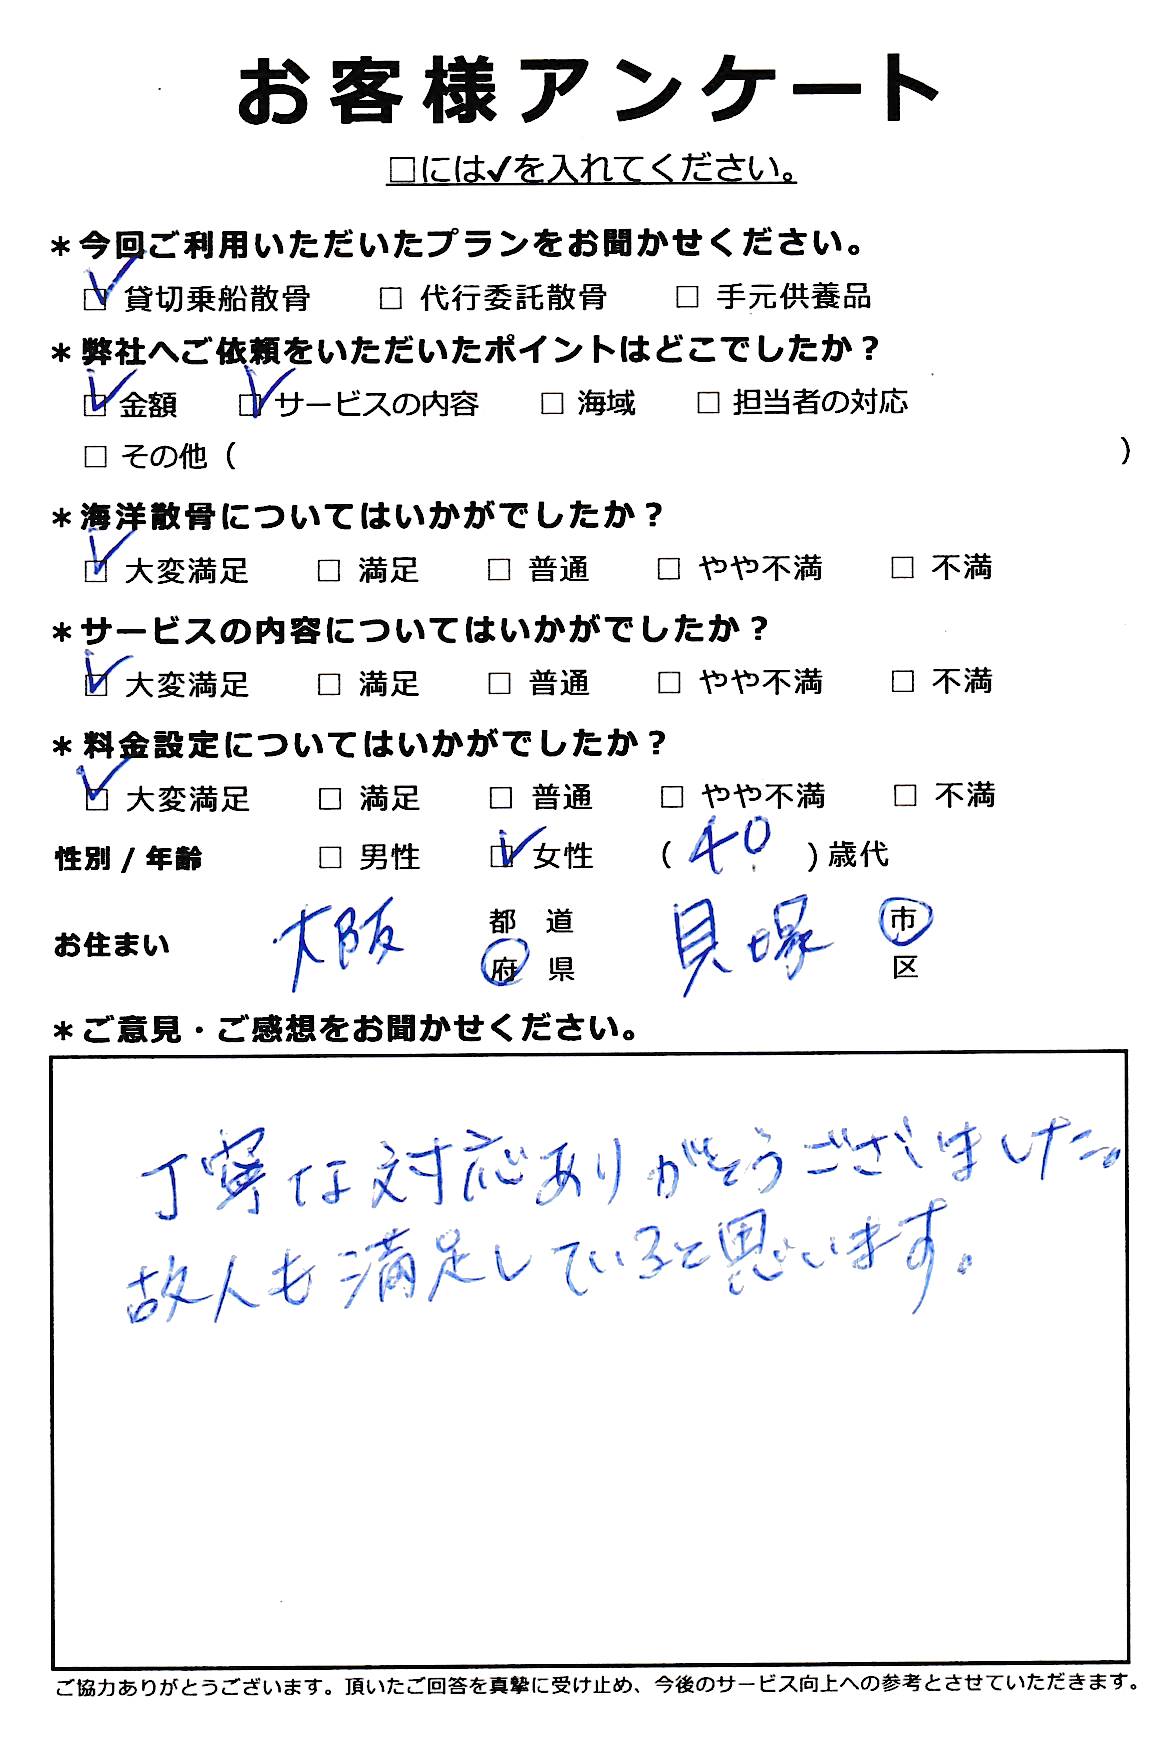 お客様アンケート
□には✓を入れてください。
＊今回ご利用いただいたプランをお聞かせください。
☑ 貸切乗船散骨 □ 代行委託散骨 □ 手元供養品
＊弊社へご依頼をいただいたポイントはどこでしたか？
☑ 金額 ☑ サービスの内容 □ 海域 □ 担当者の対応
□ その他（ ）
＊海洋散骨についてはいかがでしたか？
☑ 大変満足 □ 満足 □ 普通 □ やや不満 □ 不満
＊サービスの内容についてはいかがでしたか？
☑ 大変満足 □ 満足 □ 普通 □ やや不満 □ 不満
＊料金設定についてはいかがでしたか？
☑ 大変満足 □ 満足 □ 普通 □ やや不満 □ 不満
性別 / 年齢 □ 男性 ☑ 女性 （ 40 ）歳代
お住まい 大阪 都 道 府 県 貝塚 市 区
＊ご意見・ご感想をお聞かせください。
丁寧な対応ありがとうございました。
故人も満足していると思います。
ご協力ありがとうございます。頂いたご回答を真摯に受け止め、今後のサービス向上への参考とさせていただきます。